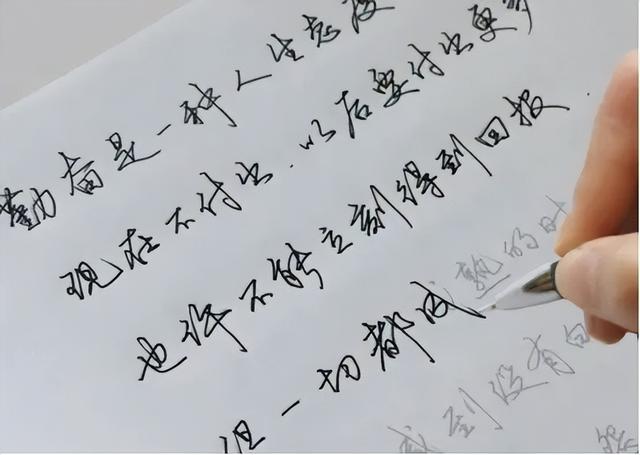 勤奋是一种人生态度
现在不付出.以后要付出更
也许不能立刻得到回报
但一切都成熟的时
感到没有白